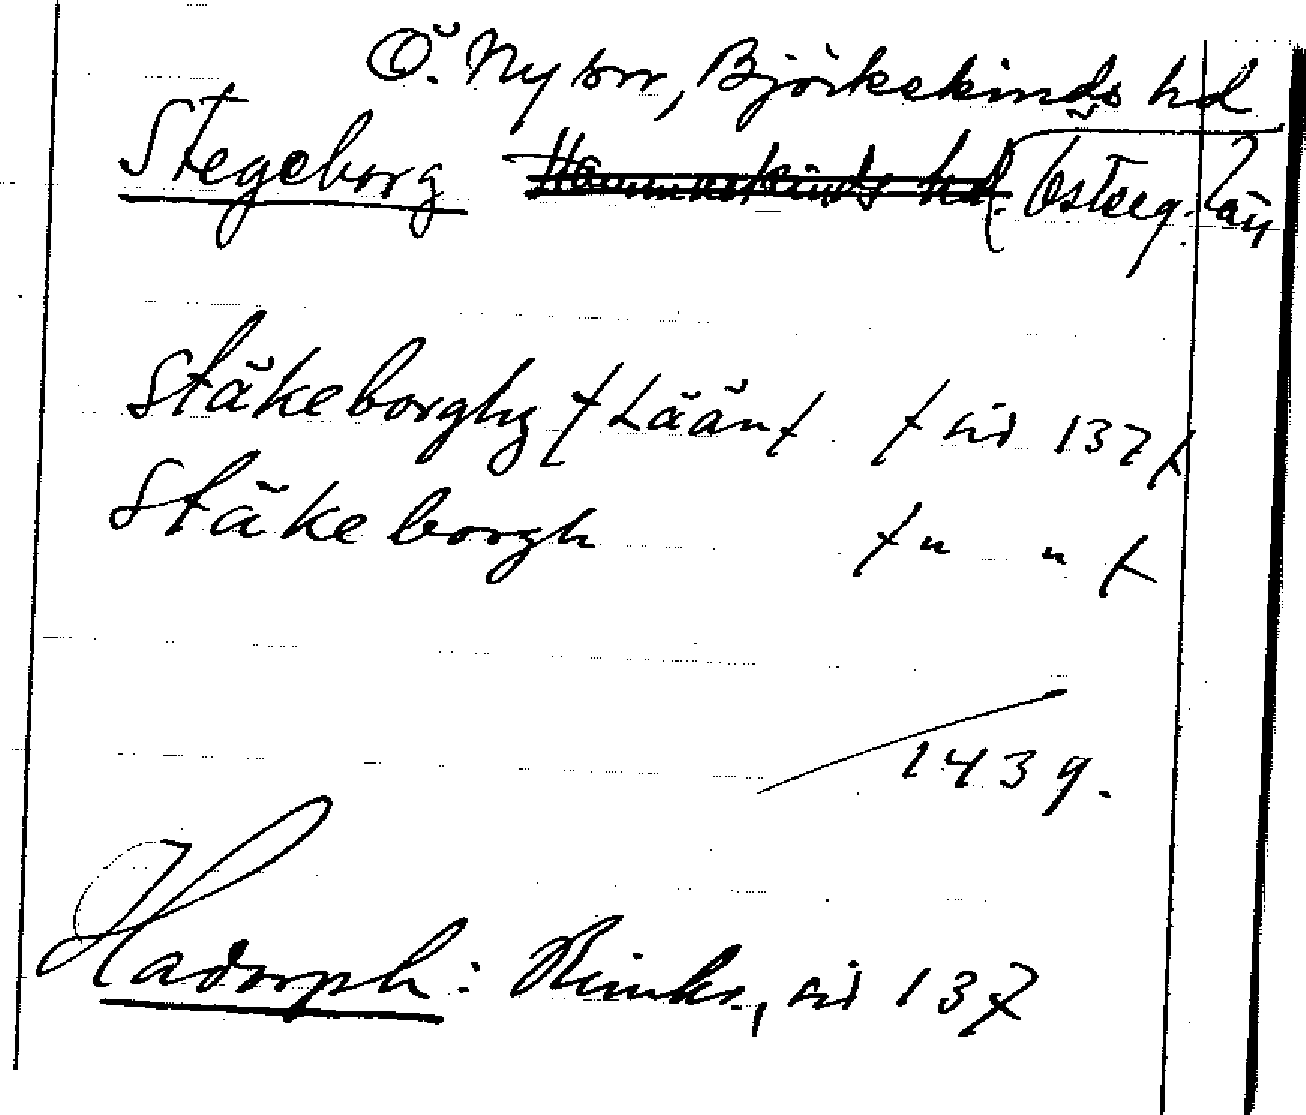 Ö. Ny snr, Björkekinds hd
Stegeborg Hammarkinds hd. Österg. län
Stäkeborghz (Läänt) (sid 137)
Stäkeborgh (" ")
1439.
Hadorph: Rimkr., sid 137